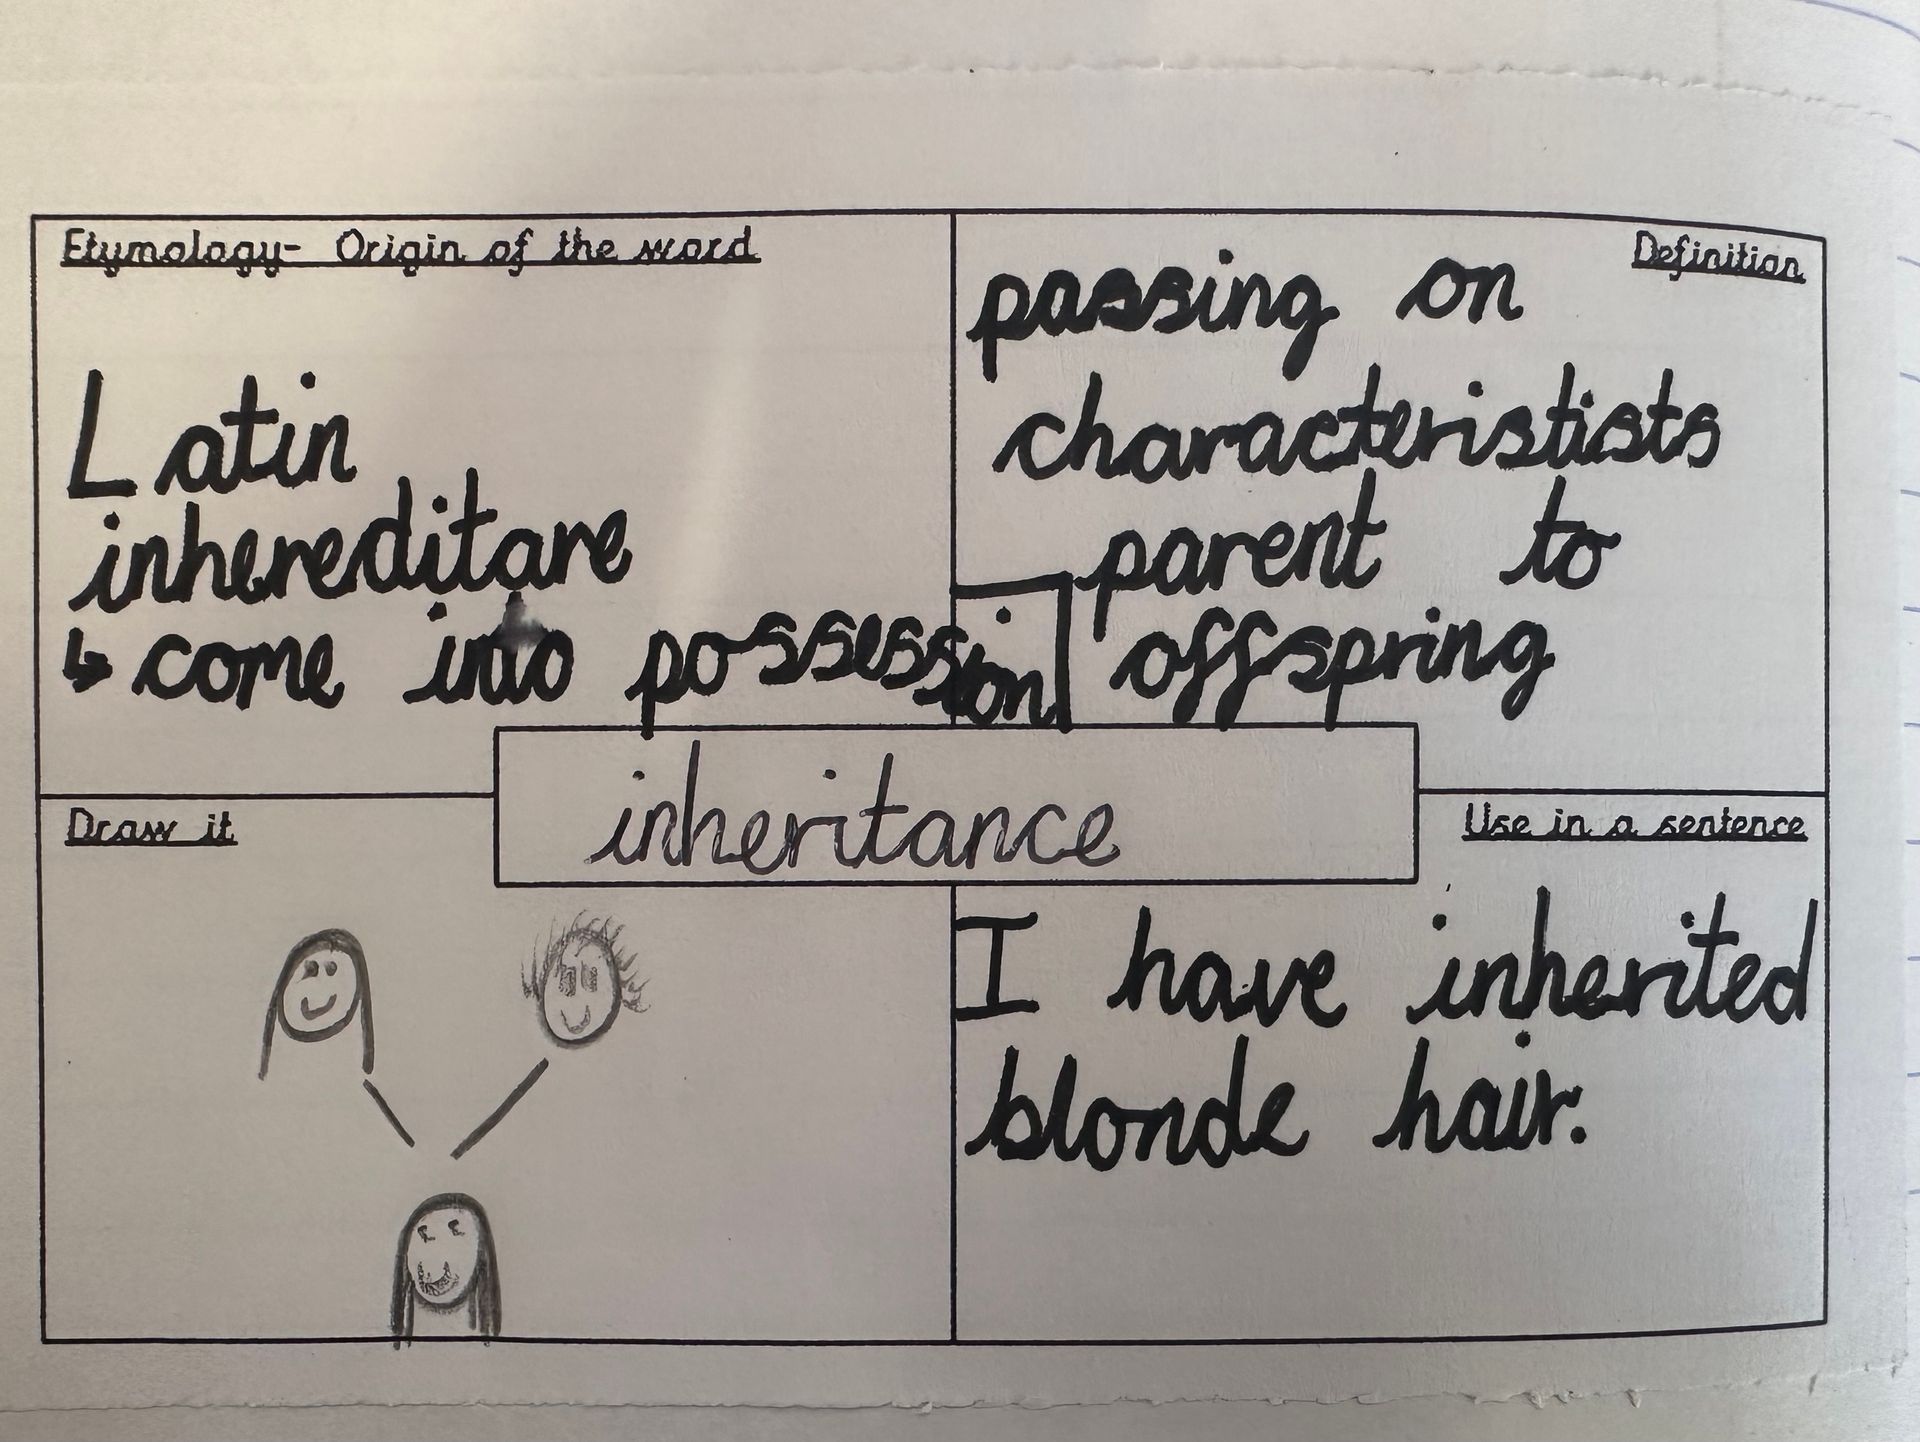 Etymology- Origin of the word
Latin
inhereditare
↳ come into possession
Definition
passing on
characteristists
parent to
offspring
inheritance
Draw it
Use in a sentence
I have inherited
blonde hair.